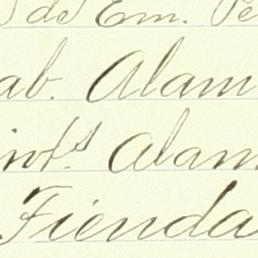 de Em. Pe
ab. Alam
inf.s Alam
Fienda